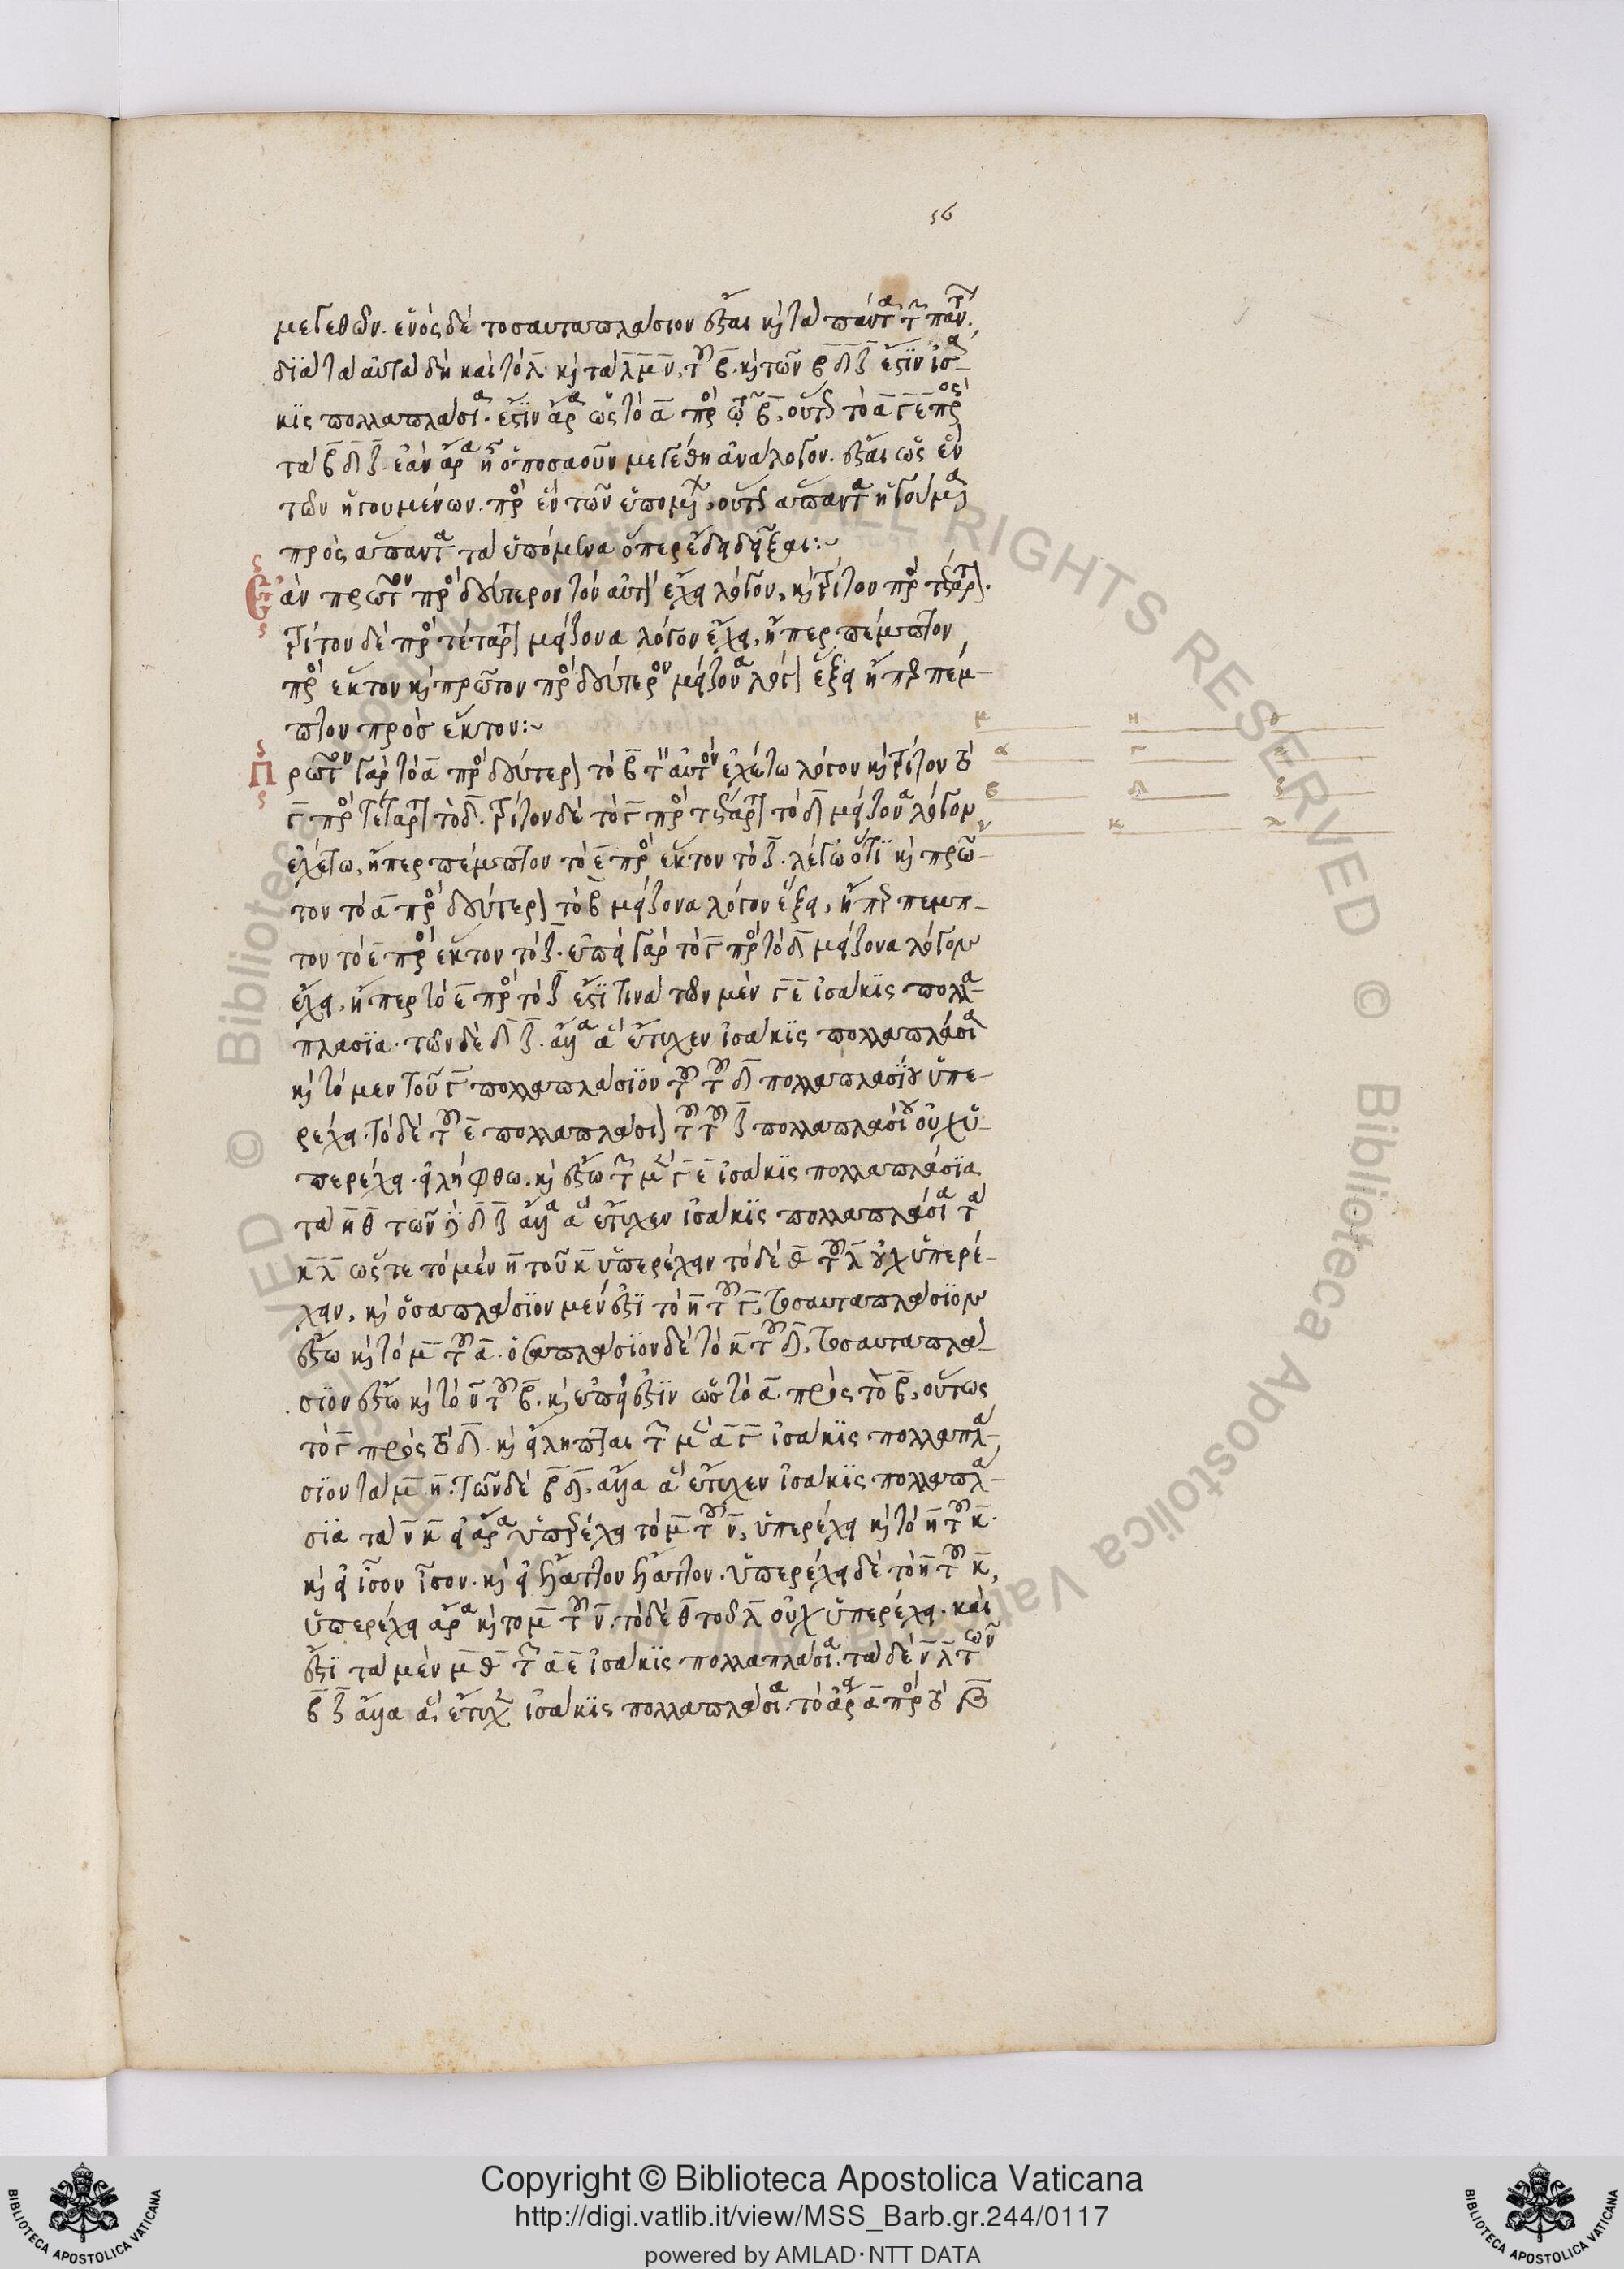 56
μεγεθῶν. ἑνὸς δὲ τοσαυταπλάσιον ἔσται κ(αὶ) τὰ πάντα τῶν πάν.
διὰ τὰ αὐτὰ δὴ καὶ τὸ λ κ(αὶ) τὰ λ μ ν, τοῦ β. κ(αὶ) τῶν β δ ζ ἐστὶν ἰσά-
κις πολλαπλάσια. ἐστὶν ἄρα ὡς τὸ α πρὸς β, οὕτως τὸ α γ ε πρὸς
τὰ β δ ζ. ἐὰν ἄρα ἦ ὁποσαοῦν μεγέθη ἀνάλογον. ἔσται ὡς ἓν
τῶν ἡγουμένων. πρὸς ἓν τῶν ἑπομένων, οὕτως ἅπαντα ἡγούμενα
πρὸς ἅπαντα τὰ ἑπόμενα ὅπερ ἔδει δεῖξαι:~
Ἐὰν πρῶτον πρὸς δεύτερον τὸν αὐτὸν ἔχει λόγον, κ(αὶ) τρίτον πρὸς τέταρτον.
τρίτον δὲ πρὸς τέταρτον μείζονα λόγον ἔχει, ἤπερ πέμπτον
πρὸς ἕκτον κ(αὶ) πρῶτον πρὸς δεύτερον μείζονα λόγον ἕξει ἤπερ πέμ-
πτον πρὸσ ἕκτον:~
Πρῶτον γὰρ τὸ α πρὸς δεύτερον τὸ β τὸν αὐτὸν ἐχέτω λόγον κ(αὶ) τρίτον τὸ
γ πρὸς τέταρτον τὸ δ. τρίτον δὲ τὸ γ πρὸς τέταρτον τὸ δ μείζονα λόγον
ἐχέτω, ἤπερ πέμπτον τὸ ε πρὸς ἕκτον τὸ ζ. λέγω ὅτι κ(αὶ) πρῶ-
τον τὸ α πρὸς δεύτερον τὸ β μείζονα λόγον ἕξει, ἤπερ πεμπ-
τον τὸ ε πρὸς ἕκτον τὸ ζ. ἐπεὶ γὰρ τὸ γ πρὸς τὸ δ μείζονα λόγον
ἔχει, ἤπερ τὸ ε πρὸς τὸ ζ ἐστὶ τινὰ τῶν μὲν γ ε ἰσάκις πολλα-
πλάσια. τῶν δὲ δ ζ. ἄλλα ἃ ἔτυχεν ἰσάκις πολλαπλάσια
κ(αὶ) τὸ μεν τοῦ γ πολλαπλάσιον τοῦ τοῦ δ πολλαπλασίου ὑπε-
ρέχει. τὸ δὲ τοῦ ε πολλαπλάσιον τοῦ τοῦ ζ πολλαπλασίου οὐχ ὑ-
περέχει. εἰλήφθω. κ(αὶ) ἔστω τῶν μὲν γ ε ἰσάκις πολλαπλάσια
τὰ η θ τῶν δὲ δ ζ ἄλλα ἃ ἔτυχεν ἰσάκις πολλαπλάσια τὰ
κ λ ὥστε τὸ μὲν η τοῦ κ ὑπερέχειν τὸ δὲ θ τοῦ λ οὐχ ὑπερέ-
χειν, κ(αὶ) ὁσαπλάσιον μέν ἐστι τὸ η τοῦ γ, τοσαυταπλάσιον
ἔστω κ(αὶ) τὸ μ τοῦ α. ὁσαπλάσιον δὲ τὸ κ τοῦ δ, τοσαυταπλά-
σιον ἔστω κ(αὶ) τὸ ν τοῦ β. κ(αὶ) ἐπεὶ ἐστὶν ὡς τὸ α πρὸς τὸ β, οὕτως
τὸ γ πρὸς τὸ δ. κ(αὶ) εἴληπται τῶν μὲν α γ ἰσάκις πολλαπλά-
σιον τὰ μ η. τῶν δὲ β δ, ἄλλα ἃ ἔτυχεν ἰσάκις πολλαπλά-
σια τὰ ν κ εἰ ἄρα ὑπερέχει τὸ μ τοῦ ν, ὑπερέχει κ(αὶ) τὸ η τοῦ κ.
κ(αὶ) εἰ ἴσον ἴσον. κ(αὶ) εἰ ἔλαττον ἔλαττον. ὑπερέχει δὲ τὸ η τοῦ κ,
ὑπερέχει ἄρα κ(αὶ) το μ τοῦ ν. τὸ δὲ θ τοῦ λ οὐχ ὑπερέχει. καὶ
ἐστι τὰ μὲν μ θ τῶν α ε ἰσάκις πολλαπλάσια. τὰ δὲ ν λ τῶν
β ζ ἄλλα ἃ ἔτυχεν ἰσάκις πολλαπλάσια. τὸ ἄρα α πρὸς τὸ β
μ η θ
α γ ε
β δ ζ
ν κ λ
Copyright © Biblioteca Apostolica Vaticana
http://digi.vatlib.it/view/MSS_Barb.gr.244/0117
powered by AMLAD·NTT DATA
BIBLIOTECA APOSTOLICA VATICANA
BIBLIOTECA APOSTOLICA VATICANA